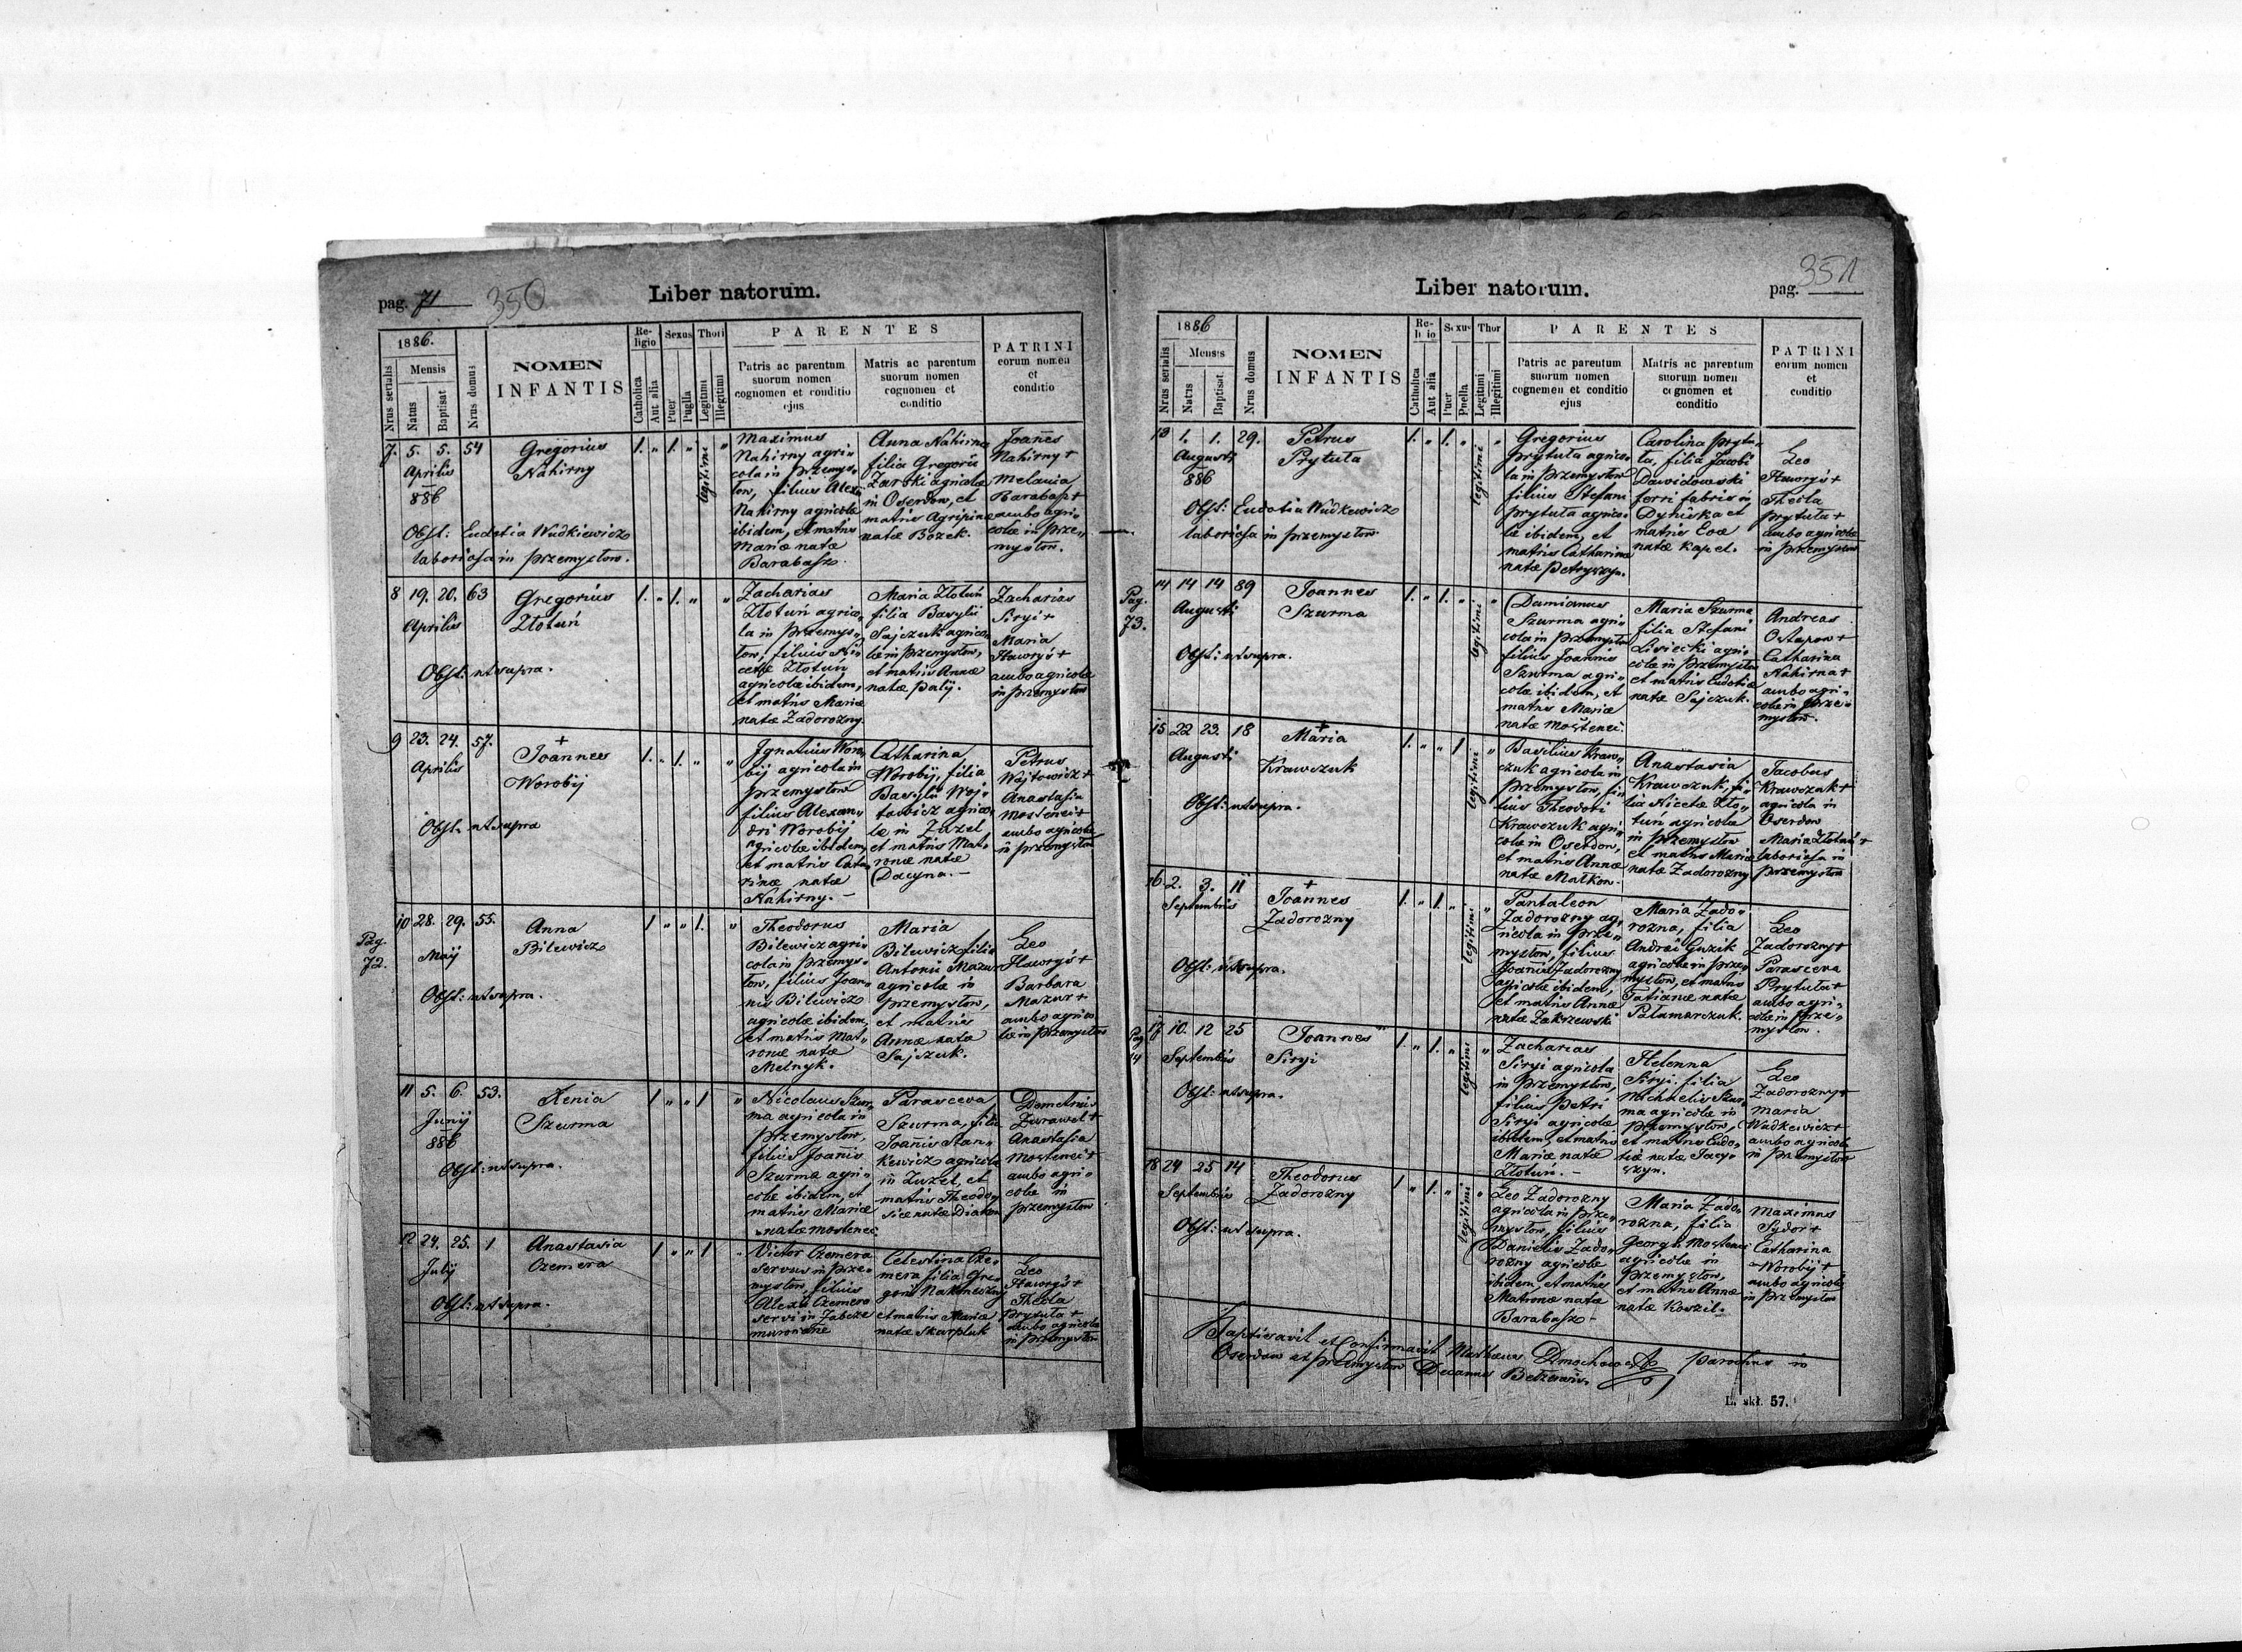 pag. 71 350
Liber natorum.
1886.
Nrus serialis
Mensis
Natus
Baptisat
Nrus domus
NOMEN
INFANTIS
Religio
Catholica
Aut alia
Sexus
Puer
Puella
Thori
Legitimi
Illegitimi
PARENTES
Patris ac parentum
suorum nomen
cognomen et conditio
ejus
Matris ac parentum
suorum nomen
cognomen et
conditio
PATRINI
eorum nomen
et
conditio
7. 5. 5. 54
Aprilis
886
Gregorius
Nahirny
1. „ 1. „ legitimi „
Obst: Eudotia Wudkiewicz
laboriosa in Przemysłow.
Maximus
Nahirny agri-
cola in Przemys-
łow, filius Alexii
Nahirny agricolæ
ibidem, et matris
Mariæ natæ
Barabasz.
Anna Nahirna
filia Gregorii
Żarski agricolæ
in Oserdow, et
matris Agripinæ
natæ Bozek.
Joannes
Nahirny +
Melania
Barabasz +
ambo agri-
colæ in Prze-
mysłow.
8 19. 20. 63
Aprilis
Gregorius
Złotuń
1. „ 1. „ „
Obst: ut supra.
Zacharias
Złotuń agrico-
la in Przemys-
łow, filius Ni-
cetæ Złotuń
agricolæ ibidem,
et matris Mariæ
natæ Zadorozny.
Maria Złotuń
filia Basylii
Sajczuk agrico-
læ in Przemysłow,
et matris Annæ
natæ Palij.
Zacharias
Siryi +
Maria
Hawryś +
ambo agricolæ
in Przemysłow
9 23. 24. 57.
Aprilis
+
Joannes
Worobij
1. „ 1. „ „
Obst. ut supra
Ignatius Woro-
bij agricola in
Przemysłow
filius Alexan-
dri Worobij
agricolæ ibidem,
et matris Cata-
rinæ natæ
Nahirny.
Catharina
Worobij, filia
Basylii Woj-
towicz agrico-
læ in Żużel
et matris Mat-
ronæ natæ
Dacyna.
Petrus
Wojtowicz +
Anastasia
Mostenci +
ambo agricolæ
in Przemysłow
Pag.
72.
10 28. 29. 55.
Maij
Anna
Bilewicz
1 „ „ 1. „
Obst: ut supra.
Theodorus
Bilewicz agri-
cola in Przemys-
łow, filius Joan-
nis Bilewicz
agricolæ ibidem,
et matris Mat-
ronæ natæ
Melnyk.
Maria
Bilewicz, filia
Antonii Mazur
agricolæ in
Przemysłow,
et matris
Annæ natæ
Sajczuk.
Leo
Hawryś +
Barbara
Mazur +
ambo agrico-
læ in Przemysłow
11 5. 6. 53.
Junij
886
Xenia
Szurma
1 „ „ 1 „
Obst: ut supra.
Nicolaus Szur-
ma agricola in
Przemysłow,
filius Joannis
Szurma agri-
colæ ibidem, et
matris Mariæ
natæ Mostenec.
Parasceva
Szurma, filia
Joannis Stan-
kewicz agricolæ
in Żużel, et
matris Theodo-
siæ natæ Diakon
Demetrius
Żurawel +
Anastasia
Mostenci +
ambo agri-
colæ in
Przemysłow
12 24. 25. 1
Julij
Anastasia
Czemera
1 „ „ 1 „
Obst: ut supra.
Victor Czemera
servus in Prze-
mysłow, filius
Alexii Czemera
servi in Żabcze
murowane
Celestina Cze-
mera filia Gre-
gorii Nakonieczny
et matris Mariæ
natæ Skarpluk
Leo
Hawryś +
Thecla
Prytuła +
ambo agricolæ
in Przemysłow
Liber natorum.
pag. 351
1886
Nrus serialis
Mensis
Natus
Baptisat.
Nrus domus
NOMEN
INFANTIS
Catholica
Aut alia
Puer
Puella
Thor
Legitimi
Illegitimi
PARENTES
Patris ac parentum
suorum nomen
cognomen et conditio
ejus
Matris ac parentum
suorum nomen
cognomen et
conditio
PATRINI
eorum nomen
et
conditio
13 1. 1. 29.
Augusti
886
Petrus
Prytuła
1. „ 1. „ legitimi „
Obst: Eudotia Wudkewicz
laboriosa in Przemysłow
Gregorius
Prytuła agrico-
la in Przemysłow
filius Stefani
Prytuła agrico-
læ ibidem, et
matris Catharinæ
natæ Petryszyn.
Carolina Prytu-
ła, filia Jacobi
Dawidowski
ferri fabris in
Dyniska et
matris Evæ
natæ Kapel.
Leo
Hawryś +
Thecla
Prytuła +
ambo agricolæ
in Przemysłow
Pag.
73.
14 14 14 89
Augusti
Joannes
Szurma
1. „ 1. „ legitimi „
Obst: ut supra.
Damianus
Szurma agri-
cola in Przemysłow
filius Joannis
Szurma agri-
colæ ibidem, et
matris Mariæ
natæ Mostenci.
Maria Szurma
filia Stefani
Lisiecki agri-
colæ in Przemysłow
et matris Eudotiæ
natæ Sajczuk.
Andreas
Ostapow +
Catharina
Nahirna +
ambo agri-
colæ in Prze-
mysłow.
15 22 23. 18
Augusti
+
Maria
Krawczuk
1. „ „ 1 legitimi „
Obst: ut supra.
Basilius Kraw-
czuk agricola in
Przemysłow, fi-
lius Theodori
Krawczuk agri-
colæ in Oserdow,
et matris Annæ
natæ Małkow.
Anastasia
Krawczuk, fi-
lia Nicetæ Zło-
tuń agricolæ
in Przemysłow
et matris Mariæ
natæ Zadorozny
Jacobus
Krawczuk +
agricola in
Oserdow
Maria Złotuń +
laboriosa in
Przemysłow
16 2. 3. 11
Septembris
+
Joannes
Zadorozny
1. „ 1. „ legitimi „
Obst: ut supra.
Pantaleon
Zadorozny ag-
ricola in Prze-
mysłow, filius
Joannis Zadorozny
agricolæ ibidem,
et matris Annæ
natæ Zakrzewski
Maria Zado-
rozna, filia
Andreæ Guzik
agricolæ in Prze-
mysłow, et matris
Tatianæ natæ
Pałamarczuk.
Leo
Zadorozny +
Parasceva
Prytuła +
ambo agri-
colæ in Prze-
mysłow.
Pag
74
17 10. 12 25
Septembris
Joannes
Siryi
1. „ 1. „ legitimi „
Obst: ut supra.
Zacharias
Siryi agricola
in Przemysłow,
filius Petri
Siryi agricolæ
ibidem, et matris
Mariæ natæ
Złotuń.
Helenna
Siryi, filia
Michaelis Szur-
ma agricolæ in
Przemysłow,
et matris Eudo-
tiæ natæ Jacy-
szyn.
Leo
Zadorozny +
Maria
Wudkewicz +
ambo agricolæ
in Przemysłow
18 24 25 14
Septembris
Theodorus
Zadorozny
1 „ 1. „ legitimi „
Obst: ut supra.
Leo Zadorozny
agricola in Prze-
mysłow, filius
Danielis Zado-
rozny agricolæ
ibidem, et matris
Matronæ natæ
Barabasz
Maria Zado-
rozna, filia
Georgii Mostenci
agricolæ in
Przemysłow,
et matris Annæ
natæ Koszil.
Maximus
Sydor +
Catharina
Worobij +
ambo agricolæ
in Przemysłow
Baptisavit et Confirmavit Mathæus Dmochowski parochus in
Oserdow et Przemysłow Decanus Bełzensis.
L. skł. 57.